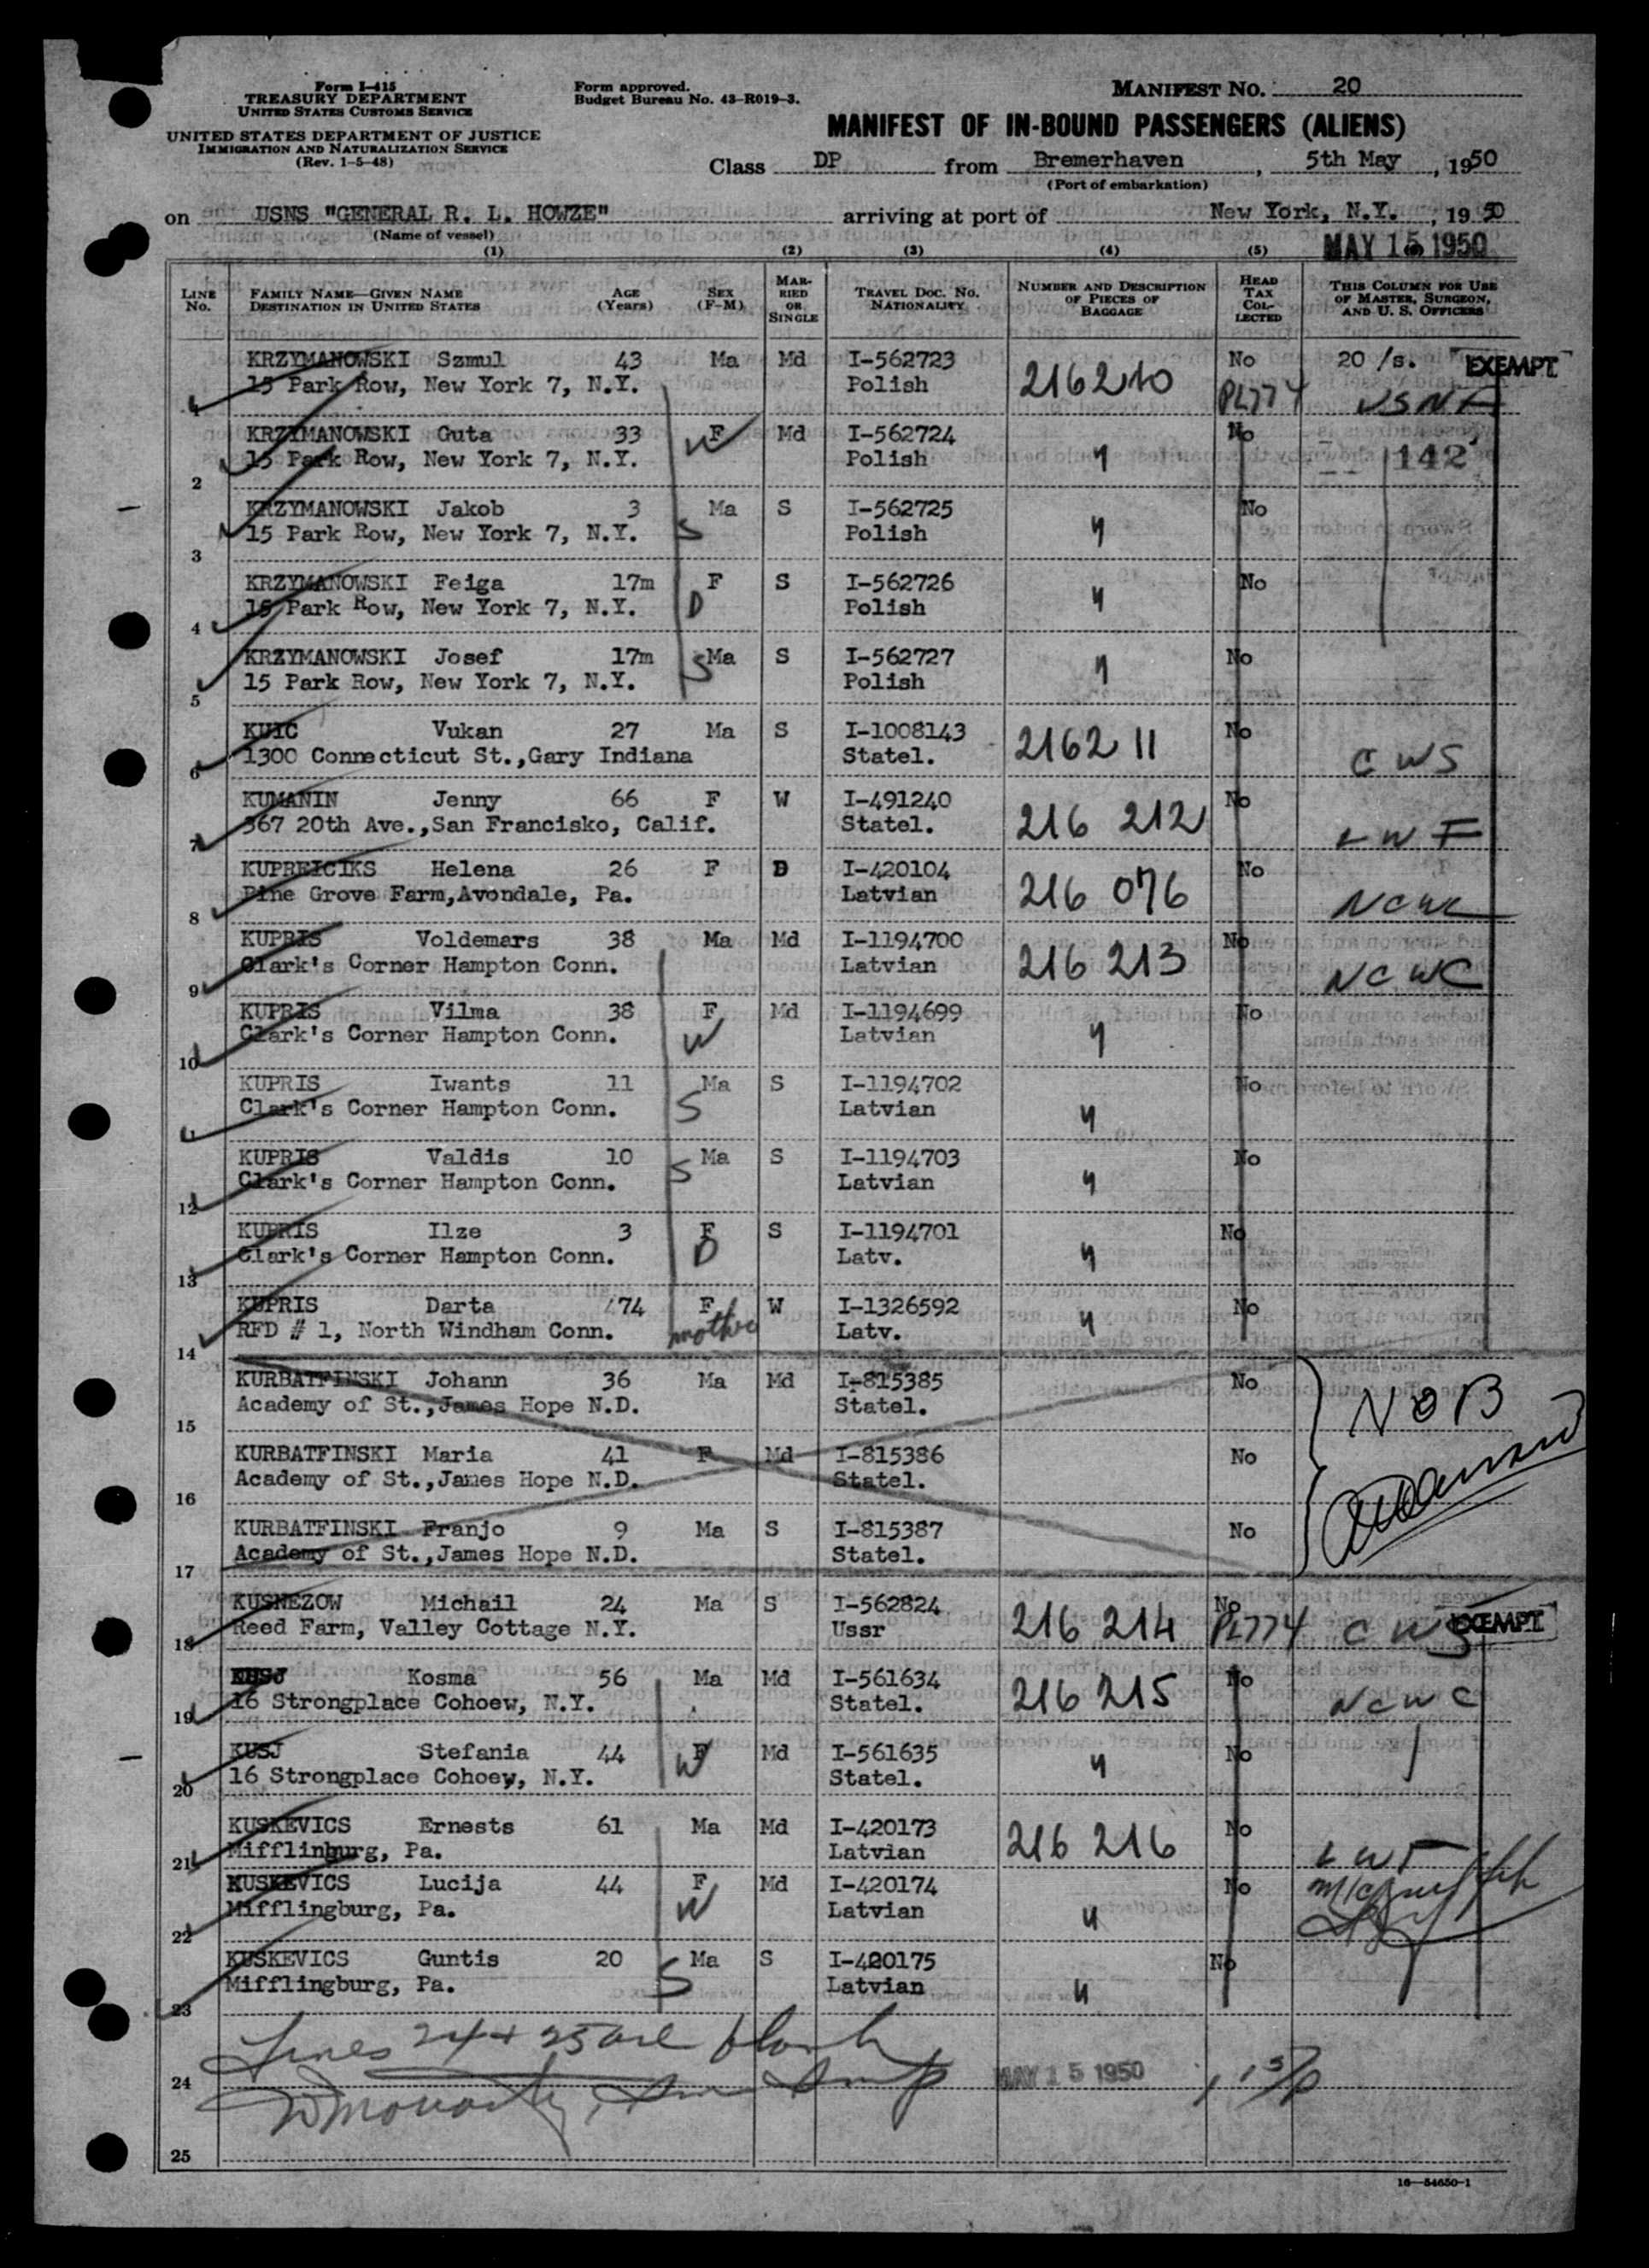 Form I-415
TREASURY DEPARTMENT
UNITED STATES CUSTOMS SERVICE
UNITED STATES DEPARTMENT OF JUSTICE
IMMIGRATION AND NATURALIZATION SERVICE
(Rev. 1-5-48)
Form approved.
Budget Bureau No. 43-R019-3.
MANIFEST NO. 20
MANIFEST OF IN-BOUND PASSENGERS (ALIENS)
Class DP from Bremerhaven, 5th May, 1950
(Port of embarkation)
on USNS "GENERAL R. L. HOWZE" arriving at port of New York, N.Y., 1950
(Name of vessel)
MAY 15 1950
(1) (2) (3) (4) (5)
LINE No. FAMILY NAME—GIVEN NAME DESTINATION IN UNITED STATES AGE (Years) SEX (F-M) MARRIED OR SINGLE TRAVEL DOC. NO. NATIONALITY NUMBER AND DESCRIPTION OF PIECES OF BAGGAGE HEAD TAX COLLECTED THIS COLUMN FOR USE OF MASTER, SURGEON, AND U. S. OFFICERS
KRZYMANOWSKI Szmul 43 Ma Md I-562723 216210 No 20 /s. EXEMPT
1 15 Park Row, New York 7, N.Y. Polish PL774 USNA
KRZYMANOWSKI Guta 33 F W Md I-562724 No
2 15 Park Row, New York 7, N.Y. Polish " 142
KRZYMANOWSKI Jakob 3 Ma S I-562725 No
3 15 Park Row, New York 7, N.Y. S Polish "
KRZYMANOWSKI Feiga 17m F S I-562726 No
4 15 Park Row, New York 7, N.Y. D Polish "
KRZYMANOWSKI Josef 17m S Ma S I-562727 No
5 15 Park Row, New York 7, N.Y. Polish "
KUIC Vukan 27 Ma S I-1008143 216211 No
6 1300 Connecticut St.,Gary Indiana Statel. CWS
KUMANIN Jenny 66 F W I-491240 No
7 367 20th Ave.,San Francisko, Calif. Statel. 216 212 LWF
KUPREICIKS Helena 26 F D I-420104 No
8 Pine Grove Farm,Avondale, Pa. Latvian 216 076 NCWC
KUPRIS Voldemars 38 Ma Md I-1194700 No
9 Clark's Corner Hampton Conn. Latvian 216 213 NCWC
KUPRIS Vilma 38 F Md I-1194699 No
10 Clark's Corner Hampton Conn. W Latvian "
KUPRIS Iwants 11 Ma S I-1194702 No
11 Clark's Corner Hampton Conn. S Latvian "
KUPRIS Valdis 10 Ma S I-1194703 No
12 Clark's Corner Hampton Conn. S Latvian "
KUPRIS Ilze 3 F S I-1194701 No
13 Clark's Corner Hampton Conn. D Latv. "
KUPRIS Darta 74 F W I-1326592 No
14 RFD # 1, North Windham Conn. mother Latv. "
KURBATFINSKI Johann 36 Ma Md I-815385 No
15 Academy of St.,James Hope N.D. Statel. NOB
KURBATFINSKI Maria 41 F Md I-815386 No
16 Academy of St.,James Hope N.D. Statel.
KURBATFINSKI Franjo 9 Ma S I-815387 No
17 Academy of St.,James Hope N.D. Statel.
KUSNEZOW Michail 24 Ma S I-562824 No
18 Reed Farm, Valley Cottage N.Y. Ussr 216 214 PL774 CWS EXEMPT
KUSJ Kosma 56 Ma Md I-561634 No
19 16 Strongplace Cohoew, N.Y. Statel. 216 215 NCWC
KUSJ Stefania 44 F W Md I-561635 No
20 16 Strongplace Cohoew, N.Y. Statel. "
KUSKEVICS Ernests 61 Ma Md I-420173 No
21 Mifflinburg, Pa. Latvian 216 216 LWF
KUSKEVICS Lucija 44 F Md I-420174 No
22 Mifflingburg, Pa. W Latvian "
KUSKEVICS Guntis 20 Ma S I-420175 No
23 Mifflingburg, Pa. S Latvian "
Lines 24 + 25 are blank
24 MAY 15 1950
25
16—54650-1